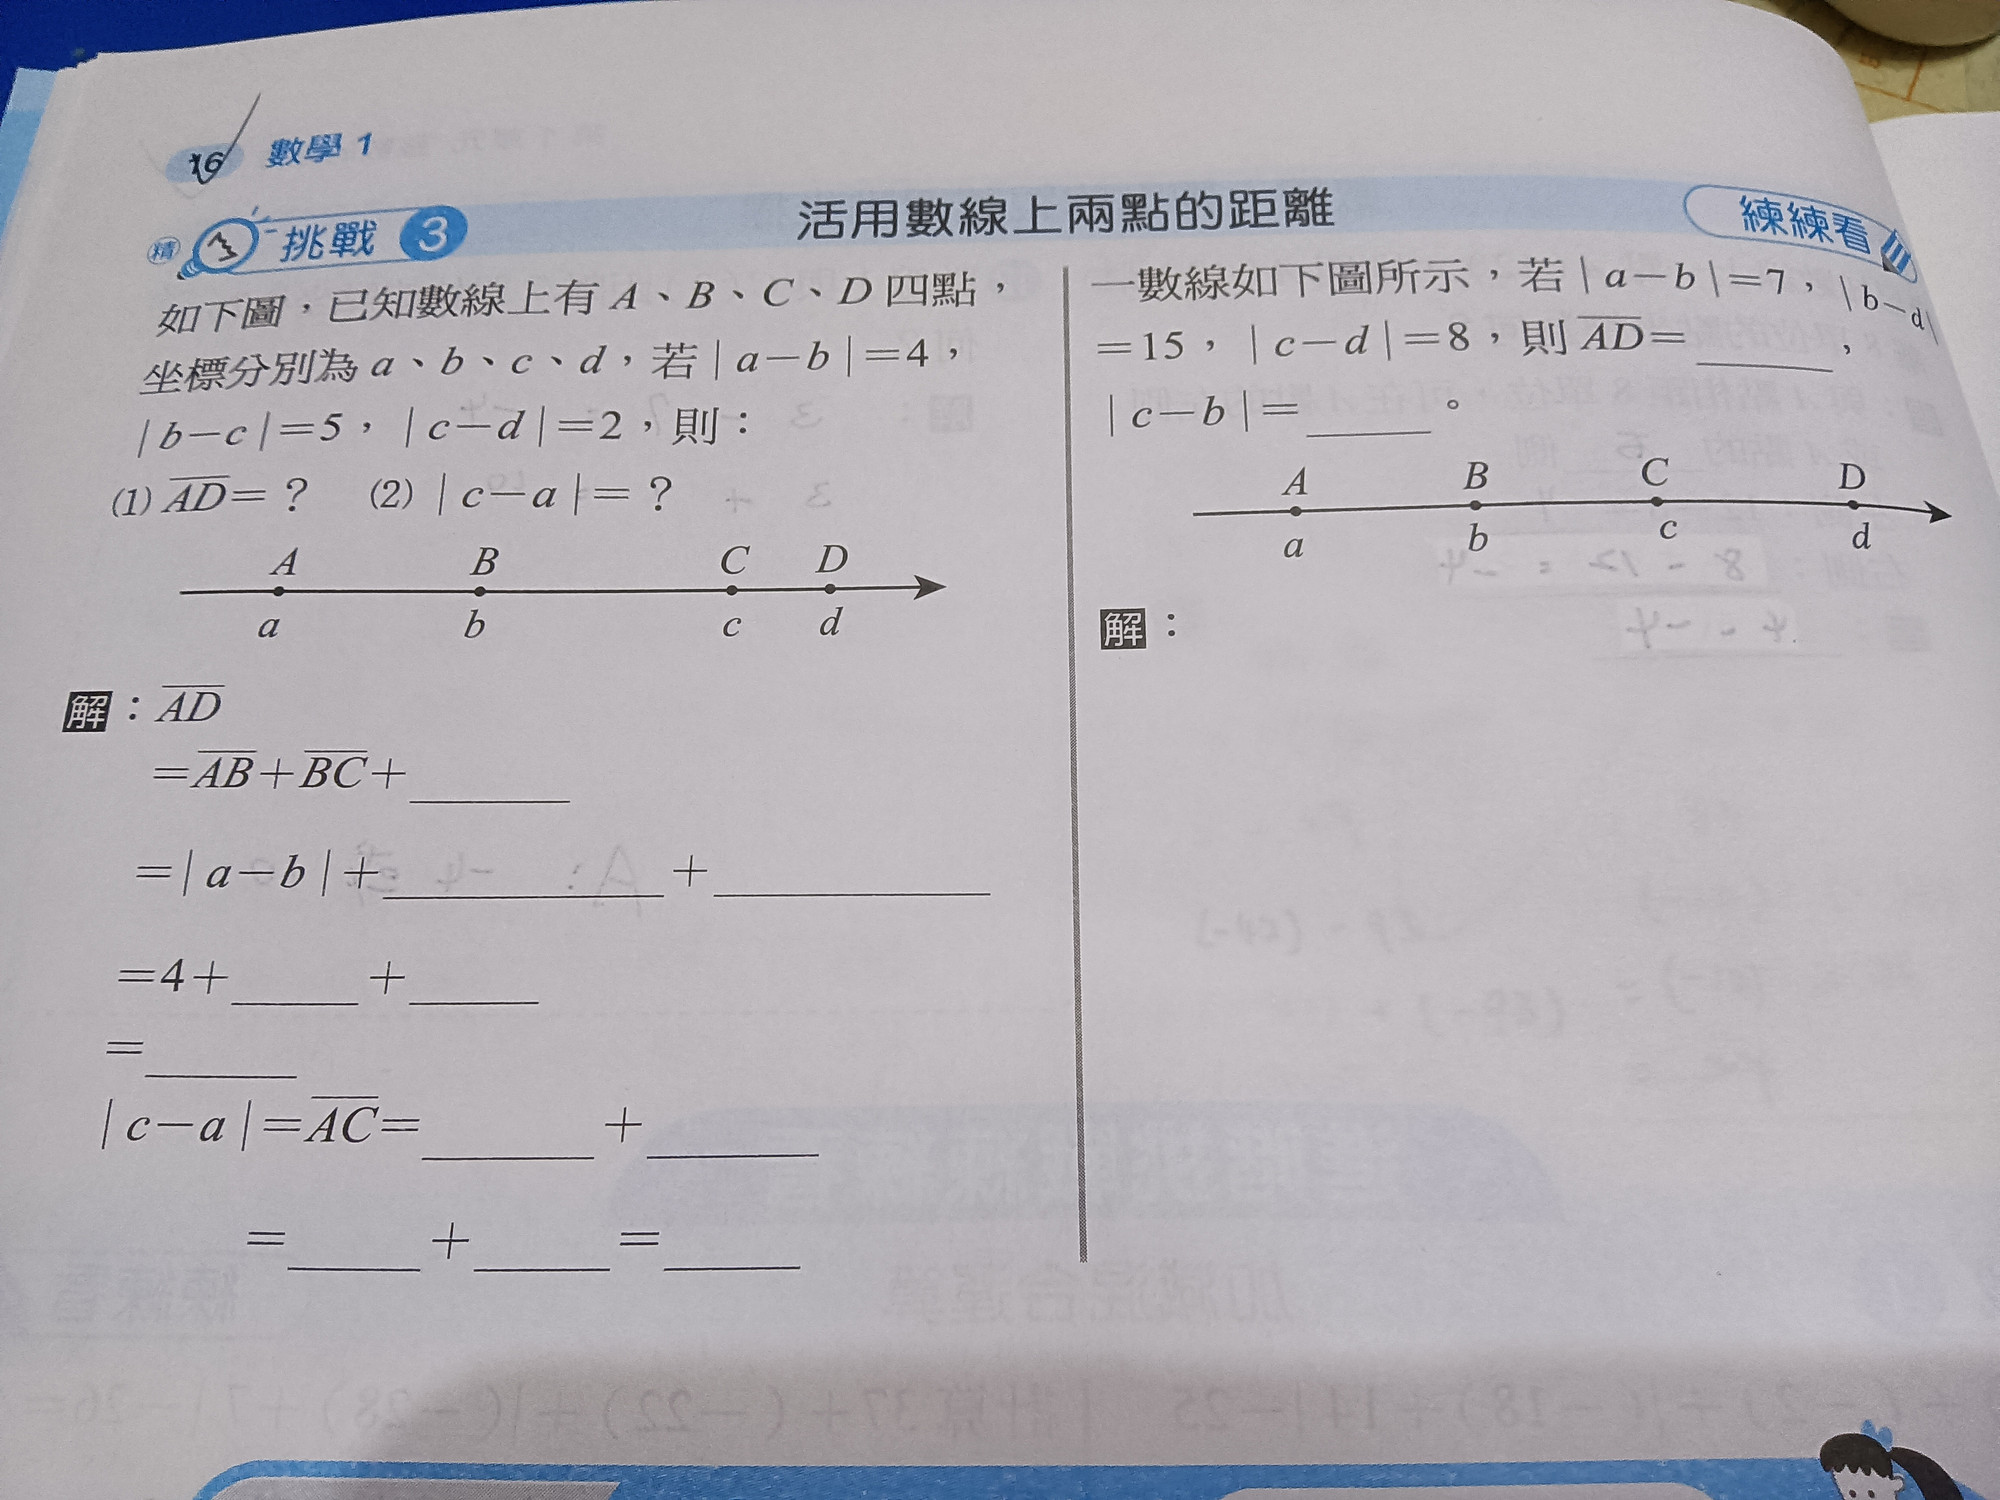 16 數學 1
精 挑戰 3 活用數線上兩點的距離 練練看
如下圖，已知數線上有 A、B、C、D 四點，
坐標分別為 a、b、c、d，若｜a－b｜＝4，
｜b－c｜＝5，｜c－d｜＝2，則：
(1) A̅D̅＝？ (2)｜c－a｜＝？
A B C D
a b c d
解：A̅D̅
＝A̅B̅＋B̅C̅＋______
＝｜a－b｜＋__________＋__________
＝4＋_____＋_____
＝______
｜c－a｜＝A̅C̅＝______＋______
＝_____＋_____＝_____
一數線如下圖所示，若｜a－b｜＝7，｜b－d｜
＝15，｜c－d｜＝8，則 A̅D̅＝_____，
｜c－b｜＝_____。
A B C D
a b c d
解：